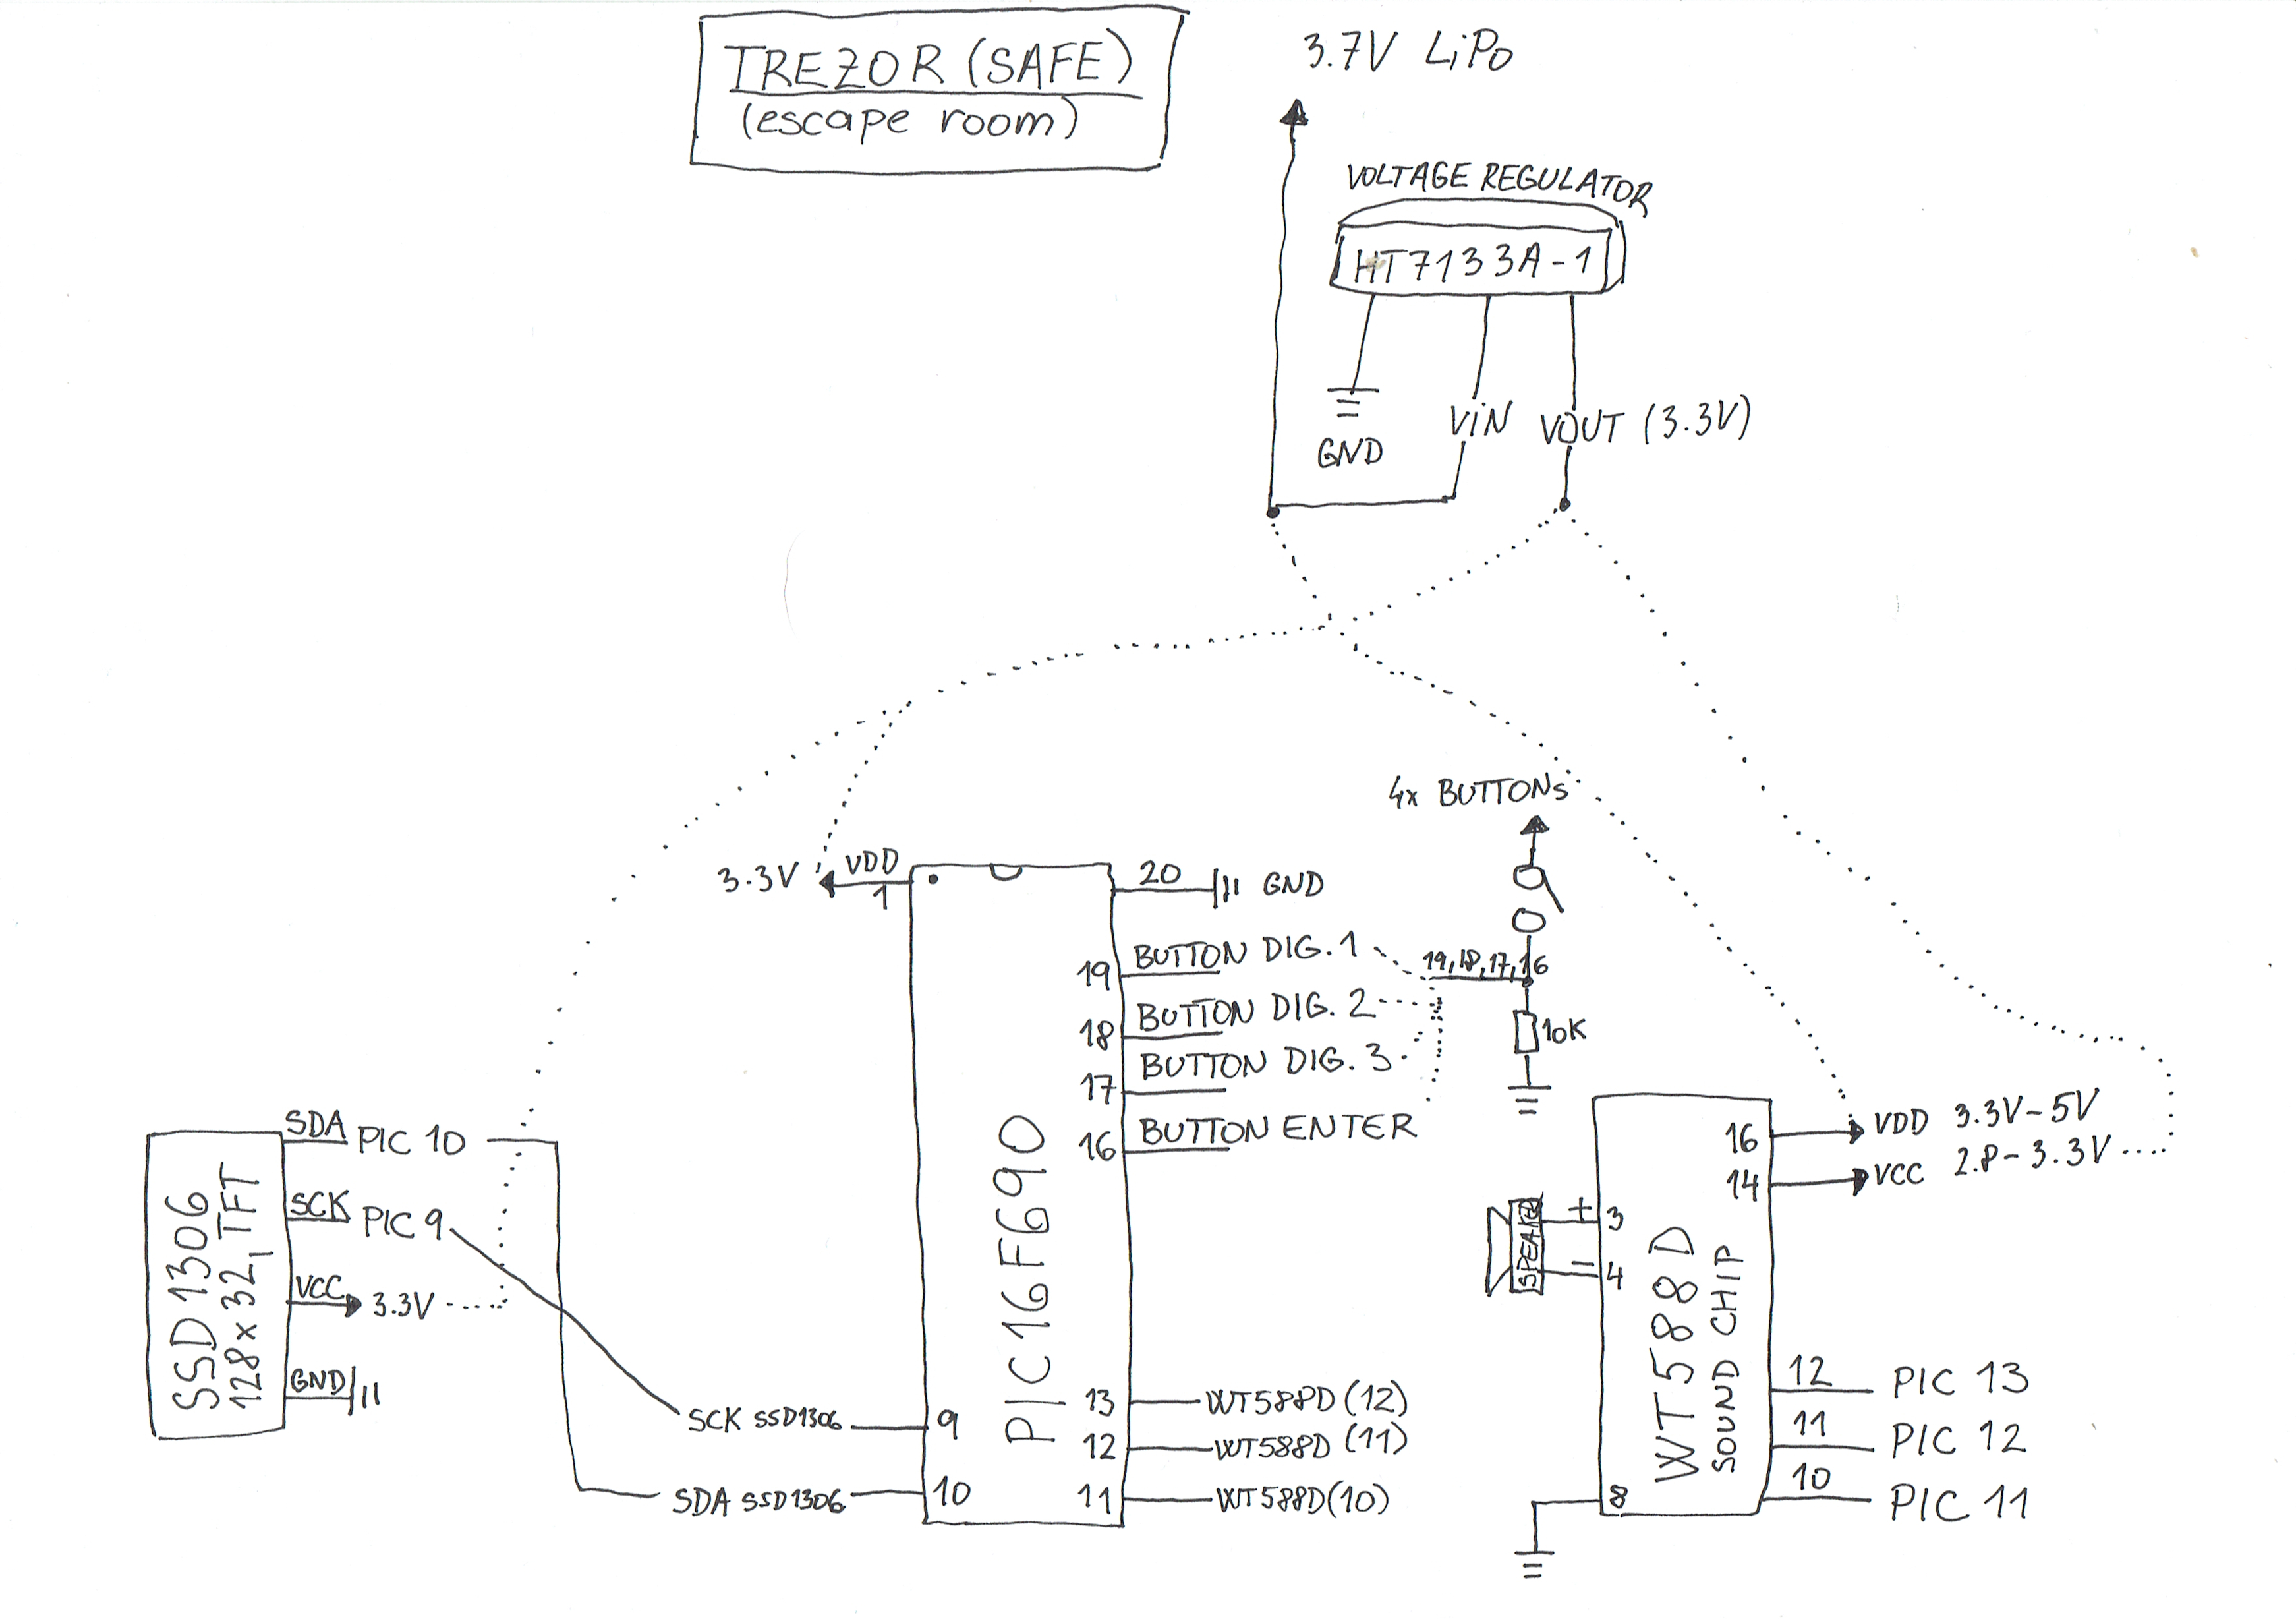 TREZOR (SAFE)
(escape room)
3.7V LiPo
VOLTAGE REGULATOR
HT7133A-1
GND
ViN
VOUT (3.3V)
4x BUTTONs
3.3V
VDD
1
20
GND
19
BUTTON DIG. 1
19,18,17,16
18
BUTTON DIG. 2
10K
17
BUTTON DIG. 3
16
BUTTON ENTER
PIC16F690
13
WT588D (12)
12
WT588D (11)
11
WT588D(10)
SCK SSD1306
9
SDA SSD1306
10
SSD1306
128x32, TFT
SDA PIC 10
SCK PIC 9
VCC 3.3V
GND
SPEAKER
+
3
-
4
8
WT588D
SOUND CHIP
16
VDD 3.3V-5V
14
VCC 2.8-3.3V
12
PIC 13
11
PIC 12
10
PIC 11